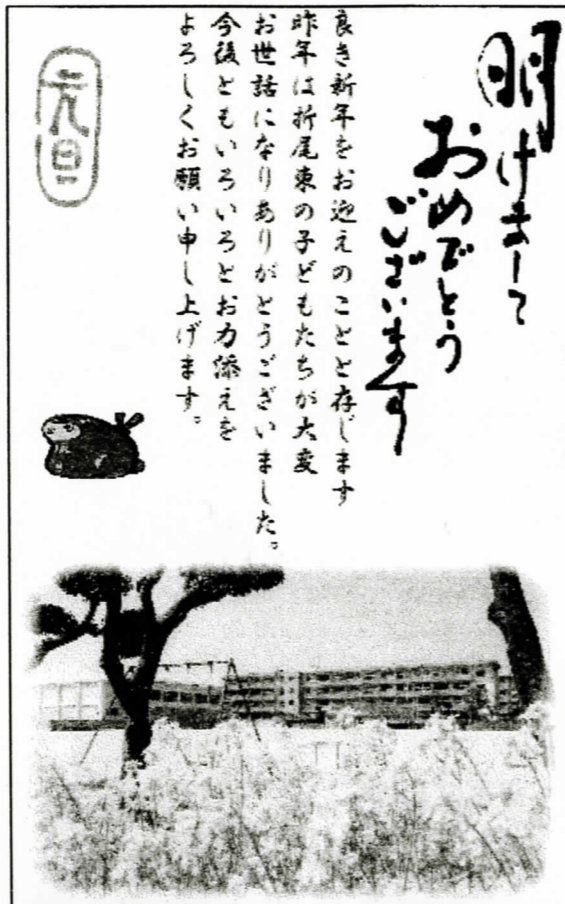 明けまして
おめでとう
ございます
良き新年をお迎えのことと存じます
昨年は折尾東の子どもたちが大変
お世話になりありがとうございました。
今後ともいろいろとお力添えを
よろしくお願い申し上げます。
元旦